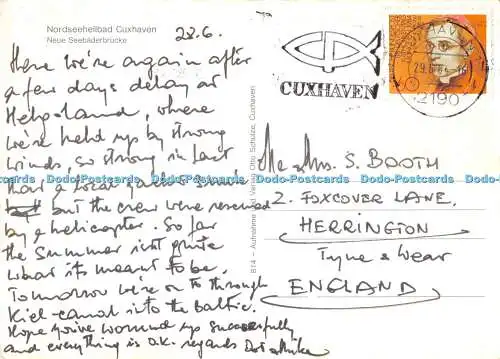 Nordseeheilbad Cuxhaven
Neue Seebäderbrücke
28.6.
Here we're again after
a few days delay at
Helgoland, where
we're held up by strong
winds, so strong in fact
that a local yacht sunk
but the crew were rescued
by a helicopter. So far
the Summer isn't quite
what it's meant to be.
Tomorrow we're on to through
Kiel-canal into the Baltic.
Hope you've wound up successfully
and everything is o.k. regards Dot & Mike
814 - Aufnahme und Verlag Otto Schulze, Cuxhaven
CUXHAVEN
CUXHAVEN
29.6.84
2190
Mr & Mrs. S. BOOTH
2. FOXCOVER LANE,
HERRINGTON
Tyne & Wear
ENGLAND
Dodo-Postcards Dodo-Postcards Dodo-Postcards Dodo-Postcards Dodo-Postcards Dodo-Postcards